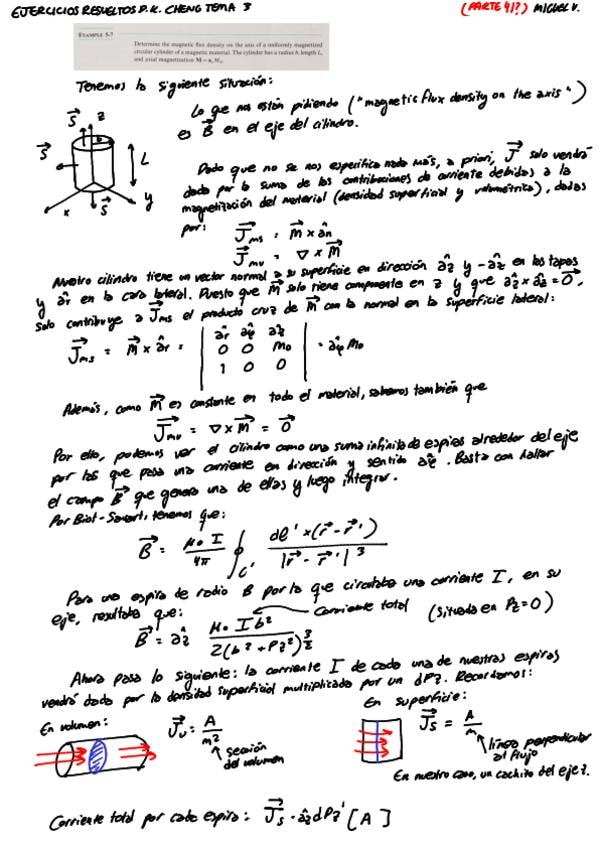 EJERCICIOS RESUELTOS D.K. CHENG TEMA 3
(PARTE 4/?) MIGUEL V.
EXAMPLE 5-7
Determine the magnetic flux density on the axis of a uniformly magnetized
circular cylinder of a magnetic material. The cylinder has a radius b, length L,
and axial magnetization M = a_z M_0.
Tenemos la siguiente situación:
Lo que nos están pidiendo ("magnetic flux density on the axis")
es B⃗ en el eje del cilindro.
S⃗ z b
S⃗ L
x S⃗ y
Dado que no se nos especifica nada más, a priori, J⃗ solo vendrá
dada por la suma de las contribuciones de corriente debidas a la
magnetización del material (densidad superficial y volumétrica), dadas
por: J⃗ms = M⃗ × ân
J⃗mv = ∇ × M⃗
Nuestro cilindro tiene un vector normal a su superficie en dirección âz y -âz en las tapas
y âr en la cara lateral. Puesto que M⃗ solo tiene componente en z y que âz × âz = 0⃗,
solo contribuye a J⃗ms el producto cruz de M⃗ con la normal en la superficie lateral:
J⃗ms = M⃗ × âr = | âr âφ âz |
| 0 0 M0 | = âφ M0
| 1 0 0 |
Además, como M⃗ es constante en todo el material, sabemos también que
J⃗mv = ∇ × M⃗ = 0⃗
Por ello, podemos ver el cilindro como una suma infinita de espiras alrededor del eje
por las que pasa una corriente en dirección y sentido âφ. Basta con hallar
el campo B⃗ que genera una de ellas y luego integrar.
Por Biot-Savart, tenemos que:
B⃗ = μ0 I / 4π ∮C' dl⃗' × (r⃗ - r⃗') / |r⃗ - r⃗'|³
Para una espira de radio b por la que circulaba una corriente I, en su
eje, resultaba que: Corriente total (Situada en Pz = 0)
B⃗ = âz μ0 I b² / 2(b² + Pz²)^3/2
Ahora pasa lo siguiente: la corriente I de cada una de nuestras espiras
vendrá dada por la densidad superficial multiplicada por un dPz. Recordamos:
En volumen:
J⃗v = A / m²
sección
del volumen
En superficie:
J⃗s = A / m
línea perpendicular
al flujo
En nuestro caso, un cachito del eje z.
Corriente total por cada espira: J⃗s · âz dPz' [A]